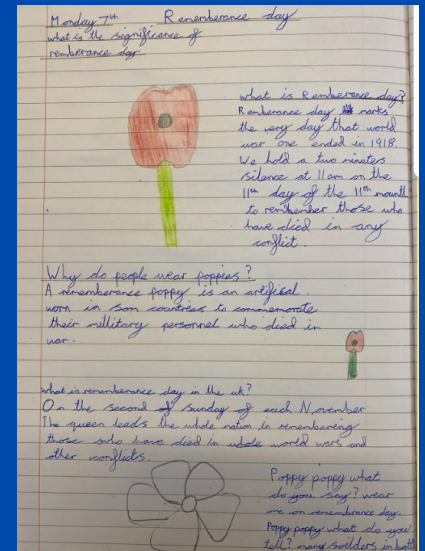 Monday 7th Rememberance day
what is the significance of
remberance day
what is Remberance day?
Remberance day marks
the very day that world
war one ended in 1918.
We hold a two minutes
silence at 11am on the
11th day of the 11th mounth
to rembember those who
have died in any
conflict.
Why do people wear poppies?
A rememberance poppy is an artifical
worn in som countries to commemorate
their millitary personnel who died in
war.
what is rememberance day in the uk?
On the second of sunday of each November
The queen leads the whole nation in remembering
those who have died in whole world wars and
other conflicts.
Poppy poppy what
do you say? wear
me on remembrance day.
Poppy poppy what do you
tell? many soilders in